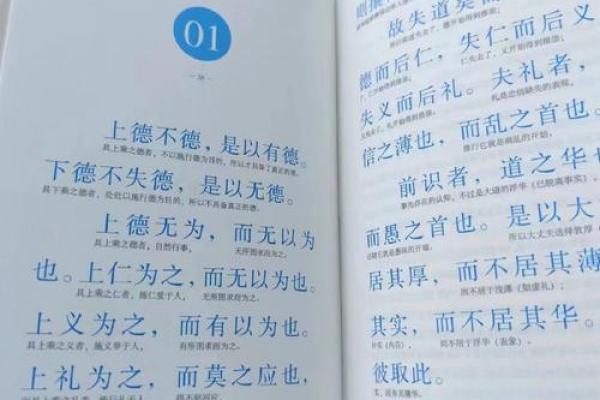 01
上德不德，是以有德。
具上乘之德者，不以施行德为目的，所以才具备了真正的德。
下德不失德，是以无德。
具下乘之德者，处处以施行德为目的，所以不具备真正的德。
上德无为，而无以为
具上乘之德者，自然行事，无所图求而为之。
也。上仁为之，而无以为也。
具上乘之仁者，施仁爱于人，无所图求而为之。
上义为之，而有以为也。
具上乘之义者，施义举于人，有所图求而为之。
上礼为之，而莫之应也，
故失道
德而后仁，失仁而后义，
失义而后礼。夫礼者，
信之薄也，而乱之首也。
前识者，道之华也
而愚之首也。是以大
居其厚，而不居其薄
而不居于浅薄（如虚礼）；
其实，而不居其华。
而不居于浮华（表象）。
彼取此。